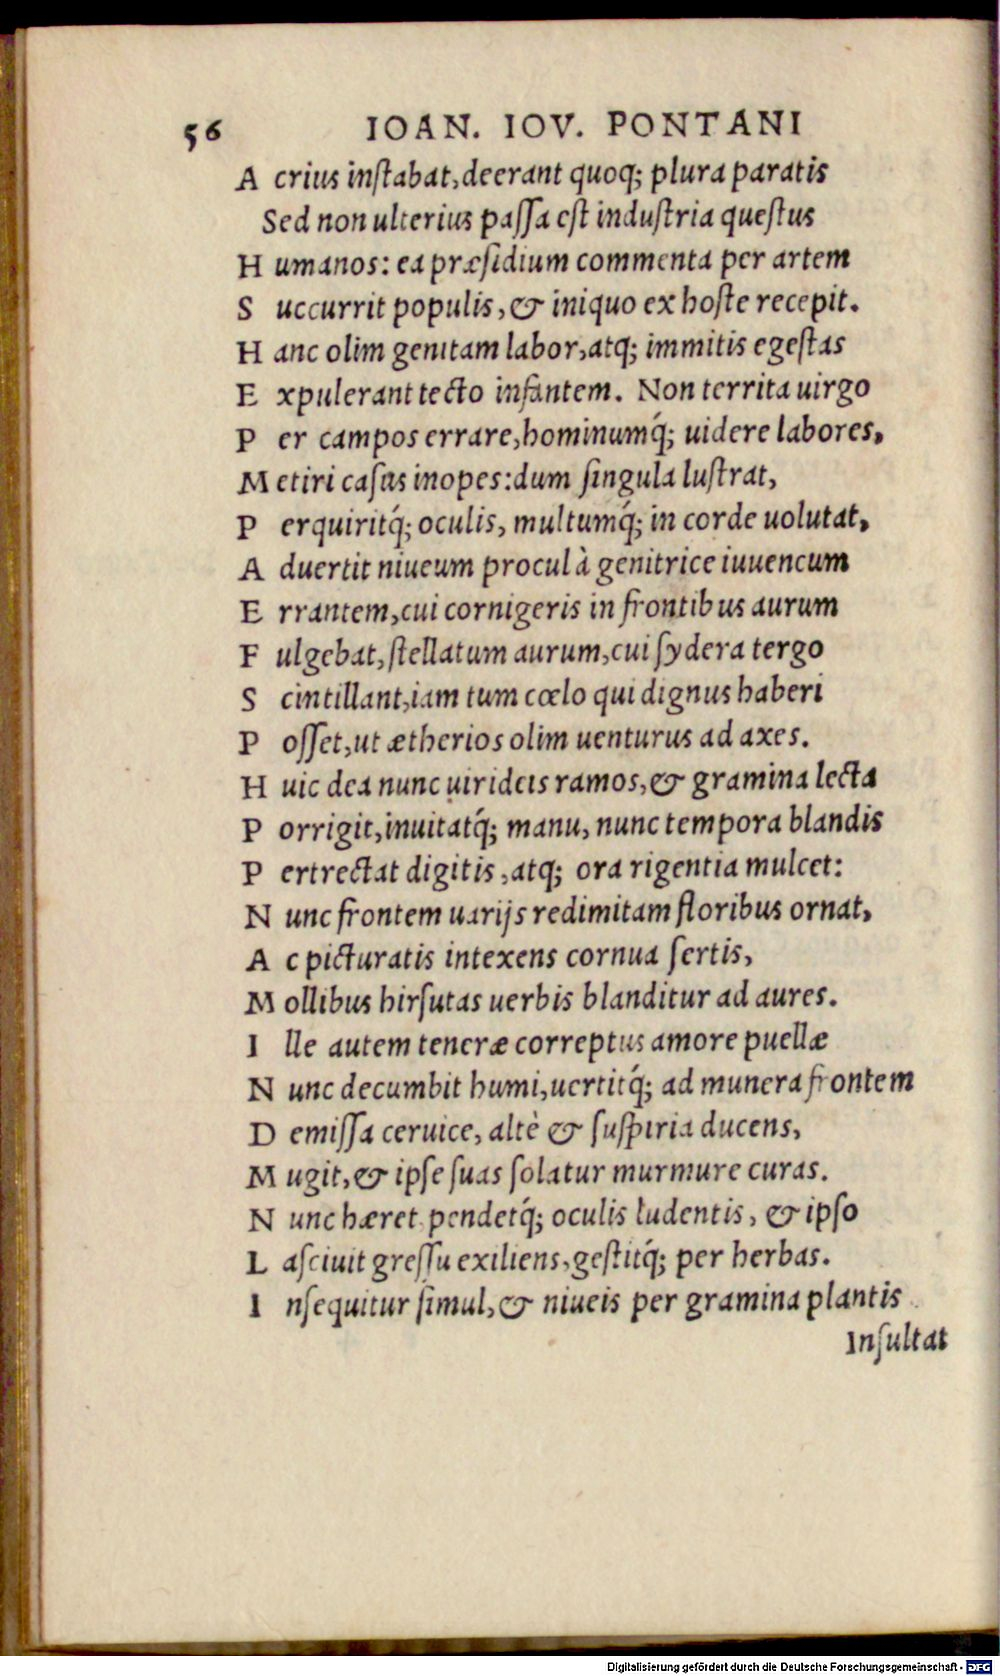 56 IOAN. IOV. PONTANI
A crius inſtabat, deerant quoq; plura paratis
Sed non ulterius paſſa eſt induſtria queſtus
H umanos: ea præſidium commenta per artem
S uccurrit populis, & iniquo ex hoſte recepit.
H anc olim genitam labor, atq; immitis egeſtas
E xpulerant tecto infantem. Non territa uirgo
P er campos errare, hominumq́; uidere labores,
M etiri caſus inopes: dum ſingula luſtrat,
P erquiritq́; oculis, multumq́; in corde uolutat,
A duertit niueum procul à genitrice iuuencum
E rrantem, cui cornigeris in frontibus aurum
F ulgebat, ſtellatum aurum, cui ſydera tergo
S cintillant, iam tum cœlo qui dignus haberi
P oſſet, ut ætherios olim uenturus ad axes.
H uic dea nunc uirideis ramos, & gramina lecta
P orrigit, inuitatq́; manu, nunc tempora blandis
P ertrectat digitis, atq; ora rigentia mulcet:
N unc frontem uarijs redimitam floribus ornat,
A c picturatis intexens cornua ſertis,
M ollibus hirſutas uerbis blanditur ad aures.
I lle autem teneræ correptus amore puellæ
N unc decumbit humi, uertitq́; ad munera frontem
D emiſſa ceruice, altè & ſuſpiria ducens,
M ugit, & ipſe ſuas ſolatur murmure curas.
N unc hæret pendetq́; oculis ludentis, & ipſo
L aſciuit greſſu exiliens, geſtitq́; per herbas.
I nſequitur ſimul, & niueis per gramina plantis
Inſultat
Digitalisierung gefördert durch die Deutsche Forschungsgemeinschaft - DFG